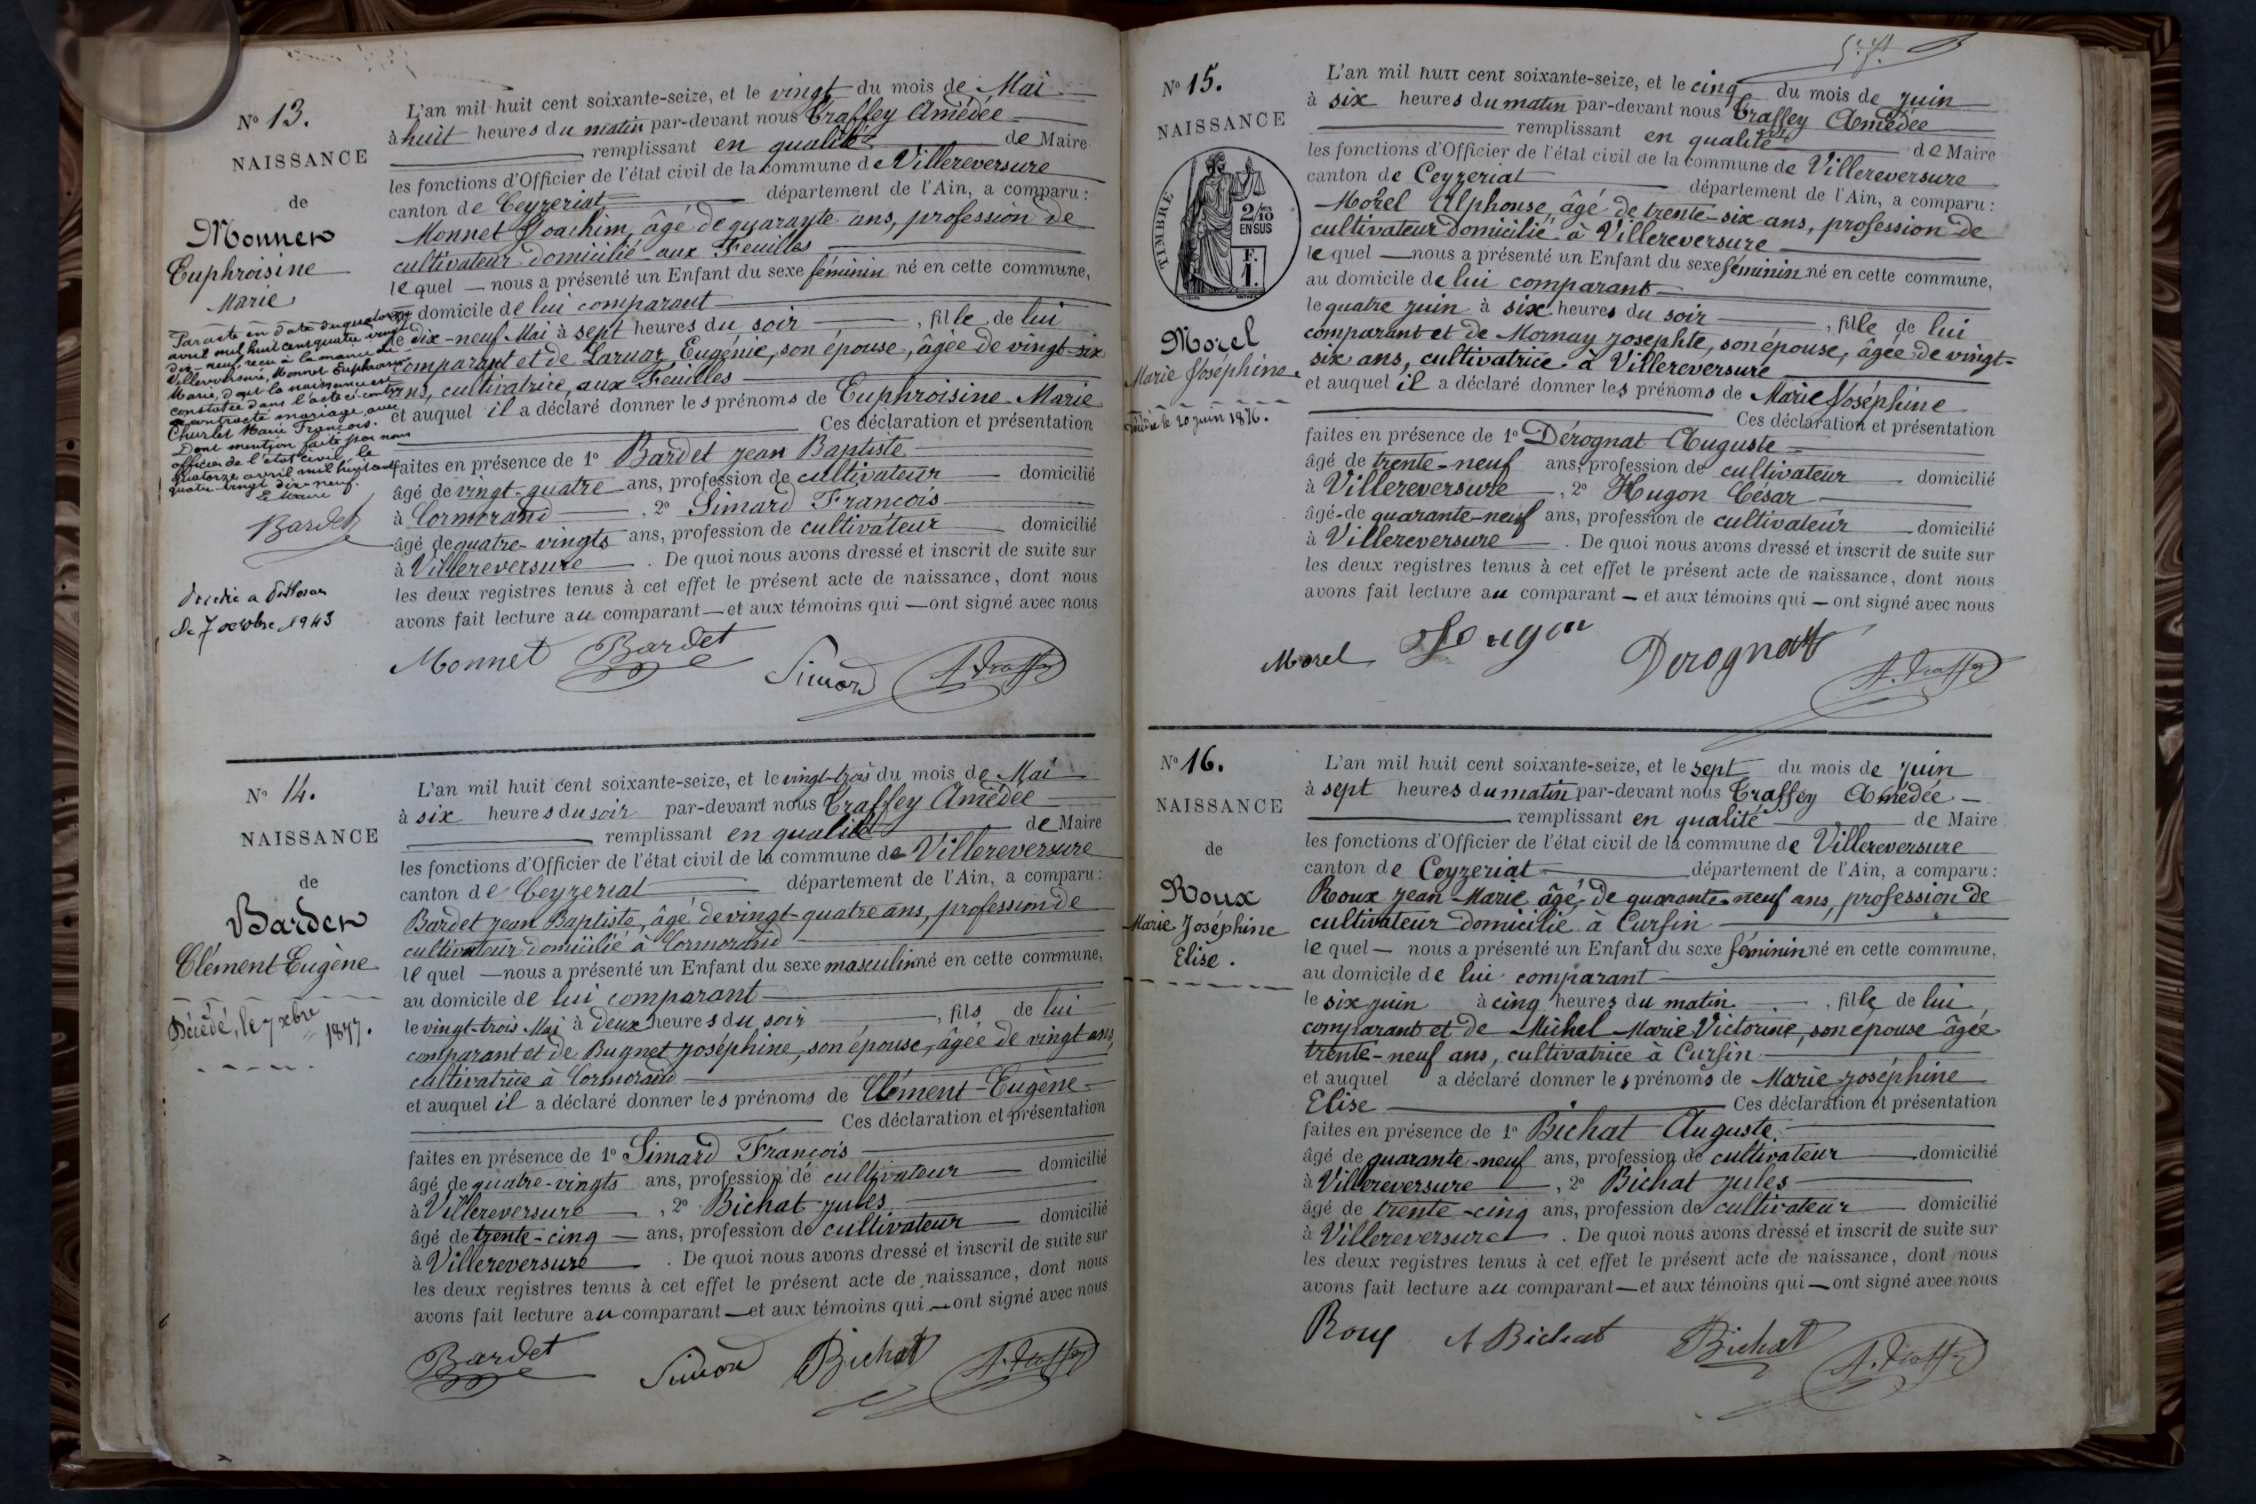 N° 13.
NAISSANCE
de
Monnet
Euphroisine
Marie
Par acte en date du quatorze
avril mil huit cent quatre vingt
dix-neuf, reçu à la mairie de
Villereversure, Monnet Euphroisine
Marie, dont la naissance est
constatée dans l'acte ci-contre
a contracté mariage avec
Charlet Marie François.
Dont mention faite par nous
officier de l'état civil, le
quatorze avril mil huit cent
quatre-vingt dix-neuf.
Le Maire
Bardet
Décédée à
le 7 octobre 1943
L'an mil huit cent soixante-seize, et le vingt du mois de Mai
à huit heures du matin par-devant nous Traffey Amédée
remplissant en qualité de Maire
les fonctions d'Officier de l'état civil de la commune de Villereversure
canton de Ceyzeriat département de l'Ain, a comparu:
Monnet Joachim, âgé de quarante ans, profession de
cultivateur domicilié aux Feuilles
lequel — nous a présenté un Enfant du sexe féminin né en cette commune,
au domicile de lui comparant
le dix-neuf Mai à sept heures du soir, fille de lui
comparant et de Laruaz Eugénie, son épouse, âgée de vingt-six
ans, cultivatrice, aux Feuilles
et auquel il a déclaré donner les prénoms de Euphroisine Marie
Ces déclaration et présentation
faites en présence de 1° Bardet Jean Baptiste
âgé de vingt-quatre ans, profession de cultivateur domicilié
à Cormorand, 2° Simard François
âgé de quatre-vingts ans, profession de cultivateur domicilié
à Villereversure. De quoi nous avons dressé et inscrit de suite sur
les deux registres tenus à cet effet le présent acte de naissance, dont nous
avons fait lecture au comparant — et aux témoins qui — ont signé avec nous
Monnet Bardet Simard A. Traffey
N° 14.
NAISSANCE
de
Bardet
Clément Eugène
Décédé, le 7 xbre 1877.
L'an mil huit cent soixante-seize, et le vingt-trois du mois de Mai
à six heures du soir par-devant nous Traffey Amédée
remplissant en qualité de Maire
les fonctions d'Officier de l'état civil de la commune de Villereversure
canton de Ceyzeriat département de l'Ain, a comparu:
Bardet Jean Baptiste, âgé de vingt-quatre ans, profession de
cultivateur domicilié à Cormorand
lequel — nous a présenté un Enfant du sexe masculin né en cette commune,
au domicile de lui comparant
le vingt-trois Mai à deux heures du soir, fils de lui
comparant et de Bugnet Joséphine, son épouse, âgée de vingt ans,
cultivatrice à Cormorand
et auquel il a déclaré donner les prénoms de Clément-Eugène
Ces déclaration et présentation
faites en présence de 1° Simard François
âgé de quatre-vingts ans, profession de cultivateur domicilié
à Villereversure, 2° Bichat Jules
âgé de trente-cinq ans, profession de cultivateur domicilié
à Villereversure. De quoi nous avons dressé et inscrit de suite sur
les deux registres tenus à cet effet le présent acte de naissance, dont nous
avons fait lecture au comparant — et aux témoins qui — ont signé avec nous
Bardet Simard Bichat A. Traffey
N° 15.
NAISSANCE
TIMBRE
2/10
EN SUS
F.
1.
Morel
Marie Joséphine.
Décédée le 20 juin 1876.
L'an mil huit cent soixante-seize, et le cinq du mois de juin
à six heures du matin par-devant nous Traffey Amédée
remplissant en qualité de Maire
les fonctions d'Officier de l'état civil de la commune de Villereversure
canton de Ceyzeriat département de l'Ain, a comparu:
Morel Alphonse, âgé de trente-six ans, profession de
cultivateur domicilié à Villereversure
lequel — nous a présenté un Enfant du sexe féminin né en cette commune,
au domicile de lui comparant
le quatre juin à six heures du soir, fille de lui
comparant et de Mornay Josephte, son épouse, âgée de vingt-
six ans, cultivatrice à Villereversure
et auquel il a déclaré donner les prénoms de Marie Joséphine
Ces déclaration et présentation
faites en présence de 1° Dérognat Auguste
âgé de trente-neuf ans, profession de cultivateur domicilié
à Villereversure, 2° Hugon César
âgé de quarante-neuf ans, profession de cultivateur domicilié
à Villereversure. De quoi nous avons dressé et inscrit de suite sur
les deux registres tenus à cet effet le présent acte de naissance, dont nous
avons fait lecture au comparant — et aux témoins qui — ont signé avec nous
Morel Hougon Derognat A. Traffey
N° 16.
NAISSANCE
de
Roux
Marie Joséphine
Elise.
L'an mil huit cent soixante-seize, et le sept du mois de juin
à sept heures du matin par-devant nous Traffey Amédée
remplissant en qualité de Maire
les fonctions d'Officier de l'état civil de la commune de Villereversure
canton de Ceyzeriat département de l'Ain, a comparu:
Roux Jean-Marie, âgé de quarante-neuf ans, profession de
cultivateur domicilié à Curfin
lequel — nous a présenté un Enfant du sexe féminin né en cette commune,
au domicile de lui comparant
le six juin à cinq heures du matin, fille de lui
comparant et de Michel Marie Victorine, son épouse âgée
trente-neuf ans, cultivatrice à Curfin
et auquel a déclaré donner les prénoms de Marie Joséphine
Elise Ces déclaration et présentation
faites en présence de 1° Bichat Auguste
âgé de quarante-neuf ans, profession de cultivateur domicilié
à Villereversure, 2° Bichat Jules
âgé de trente-cinq ans, profession de cultivateur domicilié
à Villereversure. De quoi nous avons dressé et inscrit de suite sur
les deux registres tenus à cet effet le présent acte de naissance, dont nous
avons fait lecture au comparant — et aux témoins qui — ont signé avec nous
Roux A Bichat Bichat A. Traffey